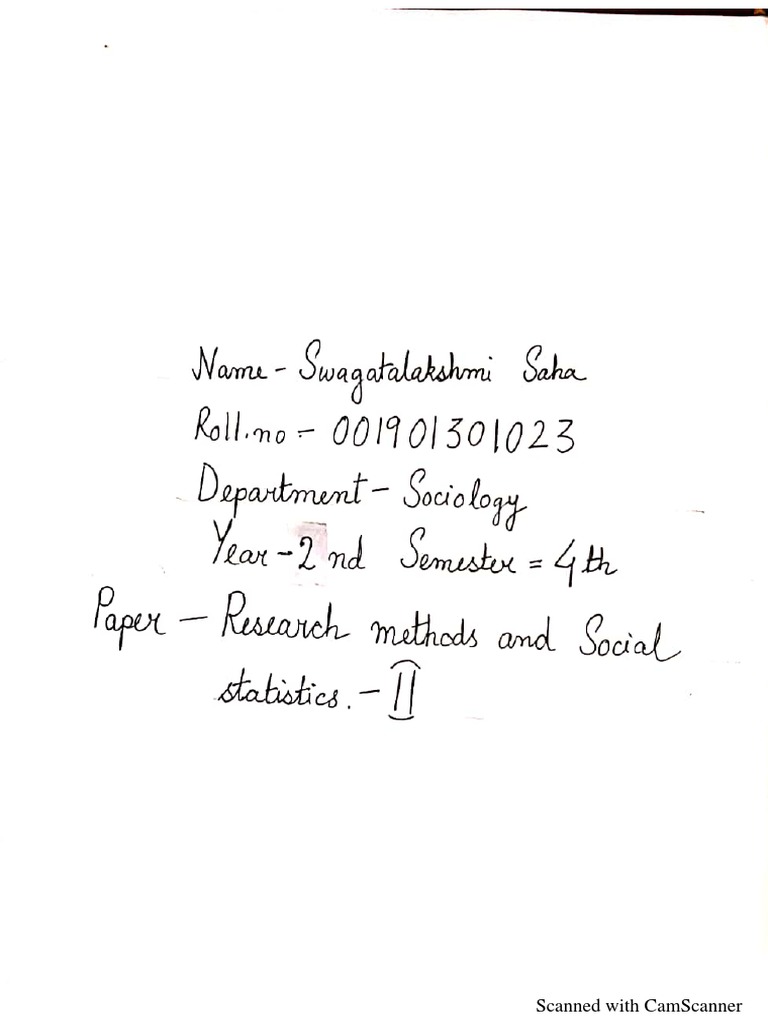 Name - Swagatalakshmi Saha
Roll.no - 001901301023
Department - Sociology
Year - 2nd Semester = 4th
Paper - Research methods and Social
statistics. - II
Scanned with CamScanner